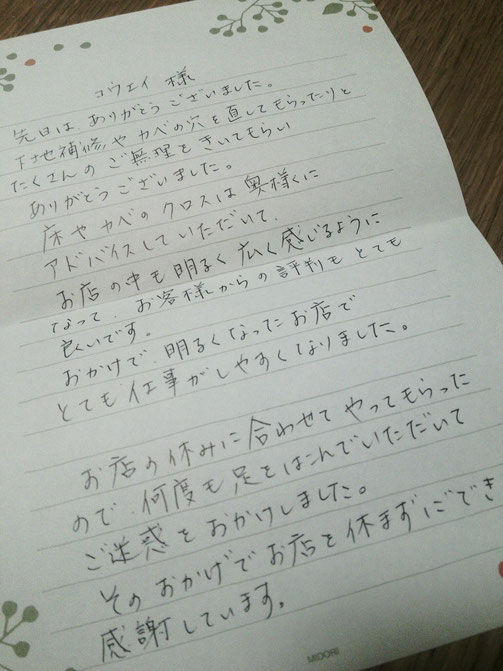 コウェイ 様
先日は ありがとうございました。
下地補修や カベの穴を直してもらったりと
たくさんの ご無理をきいてもらい
ありがとうございました。
床や カベの クロスは 奥様くに
アドバイスしていただいて、
お店の中も 明るく 広く感じるように
なって、お客様からの 評判も とても
良いです。
おかげで、明るくなったお店で
とても 仕事がしやすくなりました。
お店の休みに 合わせて やってもらった
ので、何度も 足をはこんでいただいて
ご迷惑を おかけしました。
そのおかげで お店を 休まずにでき
感謝しています。
MIDORI